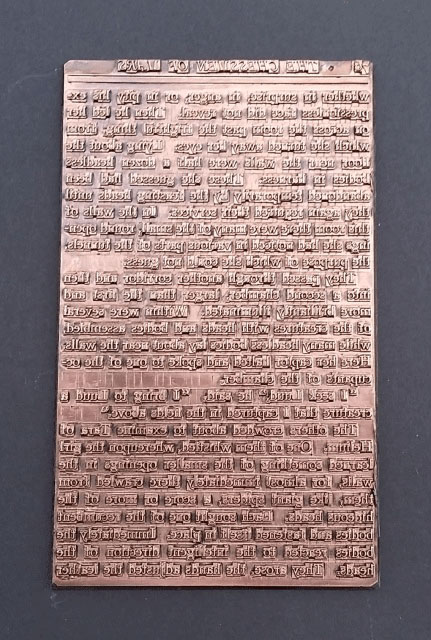 THE CHESSMEN OF MARS
whether in surprise, or anger, or in pity his ex-
pressionless face did not reveal. Then he led her
on across the room past the frightful thing, from
which she turned away her eyes. Lying about the
floor near the walls were half a dozen headless
bodies in harness. These she guessed had been
abandoned temporarily by the feasting heads until
they again required their services. In the walls of
this room there were many of the small, round open-
ings she had noticed in various parts of the tunnels,
the purpose of which she could not guess.
They passed through another corridor and then
into a second chamber, larger than the first and
more brilliantly illuminated. Within were several
of the creatures with heads and bodies assembled,
while many headless bodies lay about near the walls.
Here her captor halted and spoke to one of the oc-
cupants of the chamber.
"I seek Luud," he said. "I bring to Luud a
creature that I captured in the fields above."
The others crowded about to examine Tara of
Helium. One of them whistled, whereupon the girl
learned something of the smaller openings in the
walls, for almost immediately there crawled from
them, like giant spiders, a score or more of the
hideous heads. Each sought one of the recumbent
bodies and fastened itself in place. Immediately the
bodies reacted to the intelligent direction of the
heads. They arose, the hands adjusted the leather